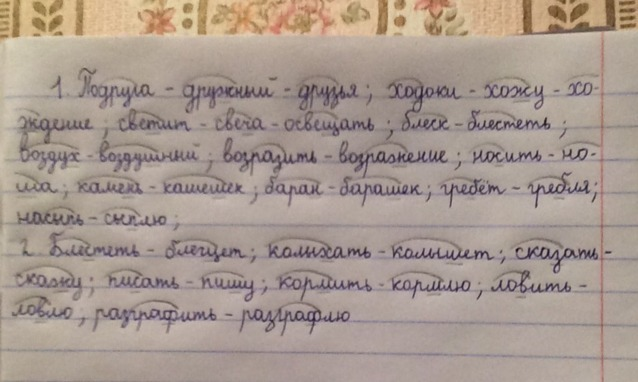 1. Подруга - дружный - друзья; ходоки - хожу - хо-
ждение; светит - свеча - освещать; блеск - блестеть;
воздух - воздушный; возразить - возражение; носить - но-
ша; камень - камешек; баран - барашек; гребёт - гребля;
насыпь - сыплю;
2. Блестеть - блещет; колыхать - колышет; сказать -
скажу; писать - пишу; кормить - кормлю; ловить -
ловлю, разграфить - разграфлю